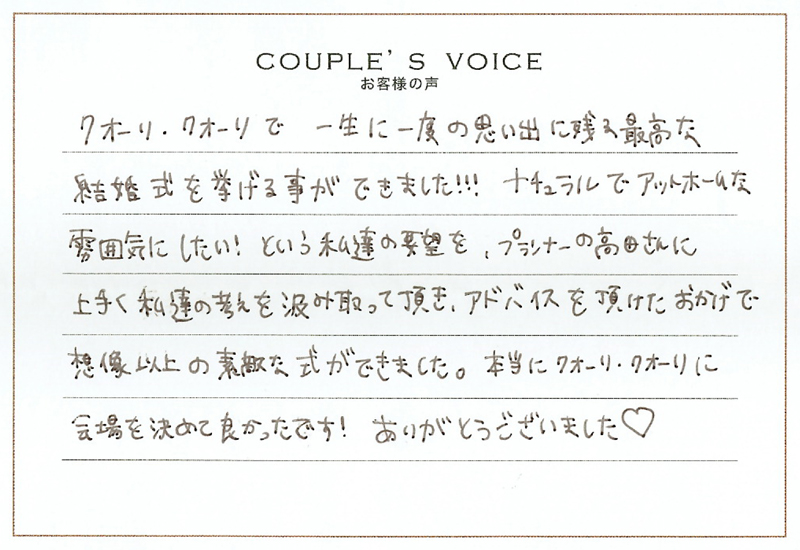 COUPLE'S VOICE
お客様の声
クオーリ・クオーリで 一生に一度の思い出に残る最高な
結婚式を挙げる事ができました!!! ナチュラルでアットホームな
雰囲気にしたい! という私達の要望を、プランナーの高田さんに
上手く私達の考えを汲み取って頂き、アドバイスを頂けたおかげで
想像以上の素敵な式ができました。本当にクオーリ・クオーリに
会場を決めて良かったです! ありがとうございました♡